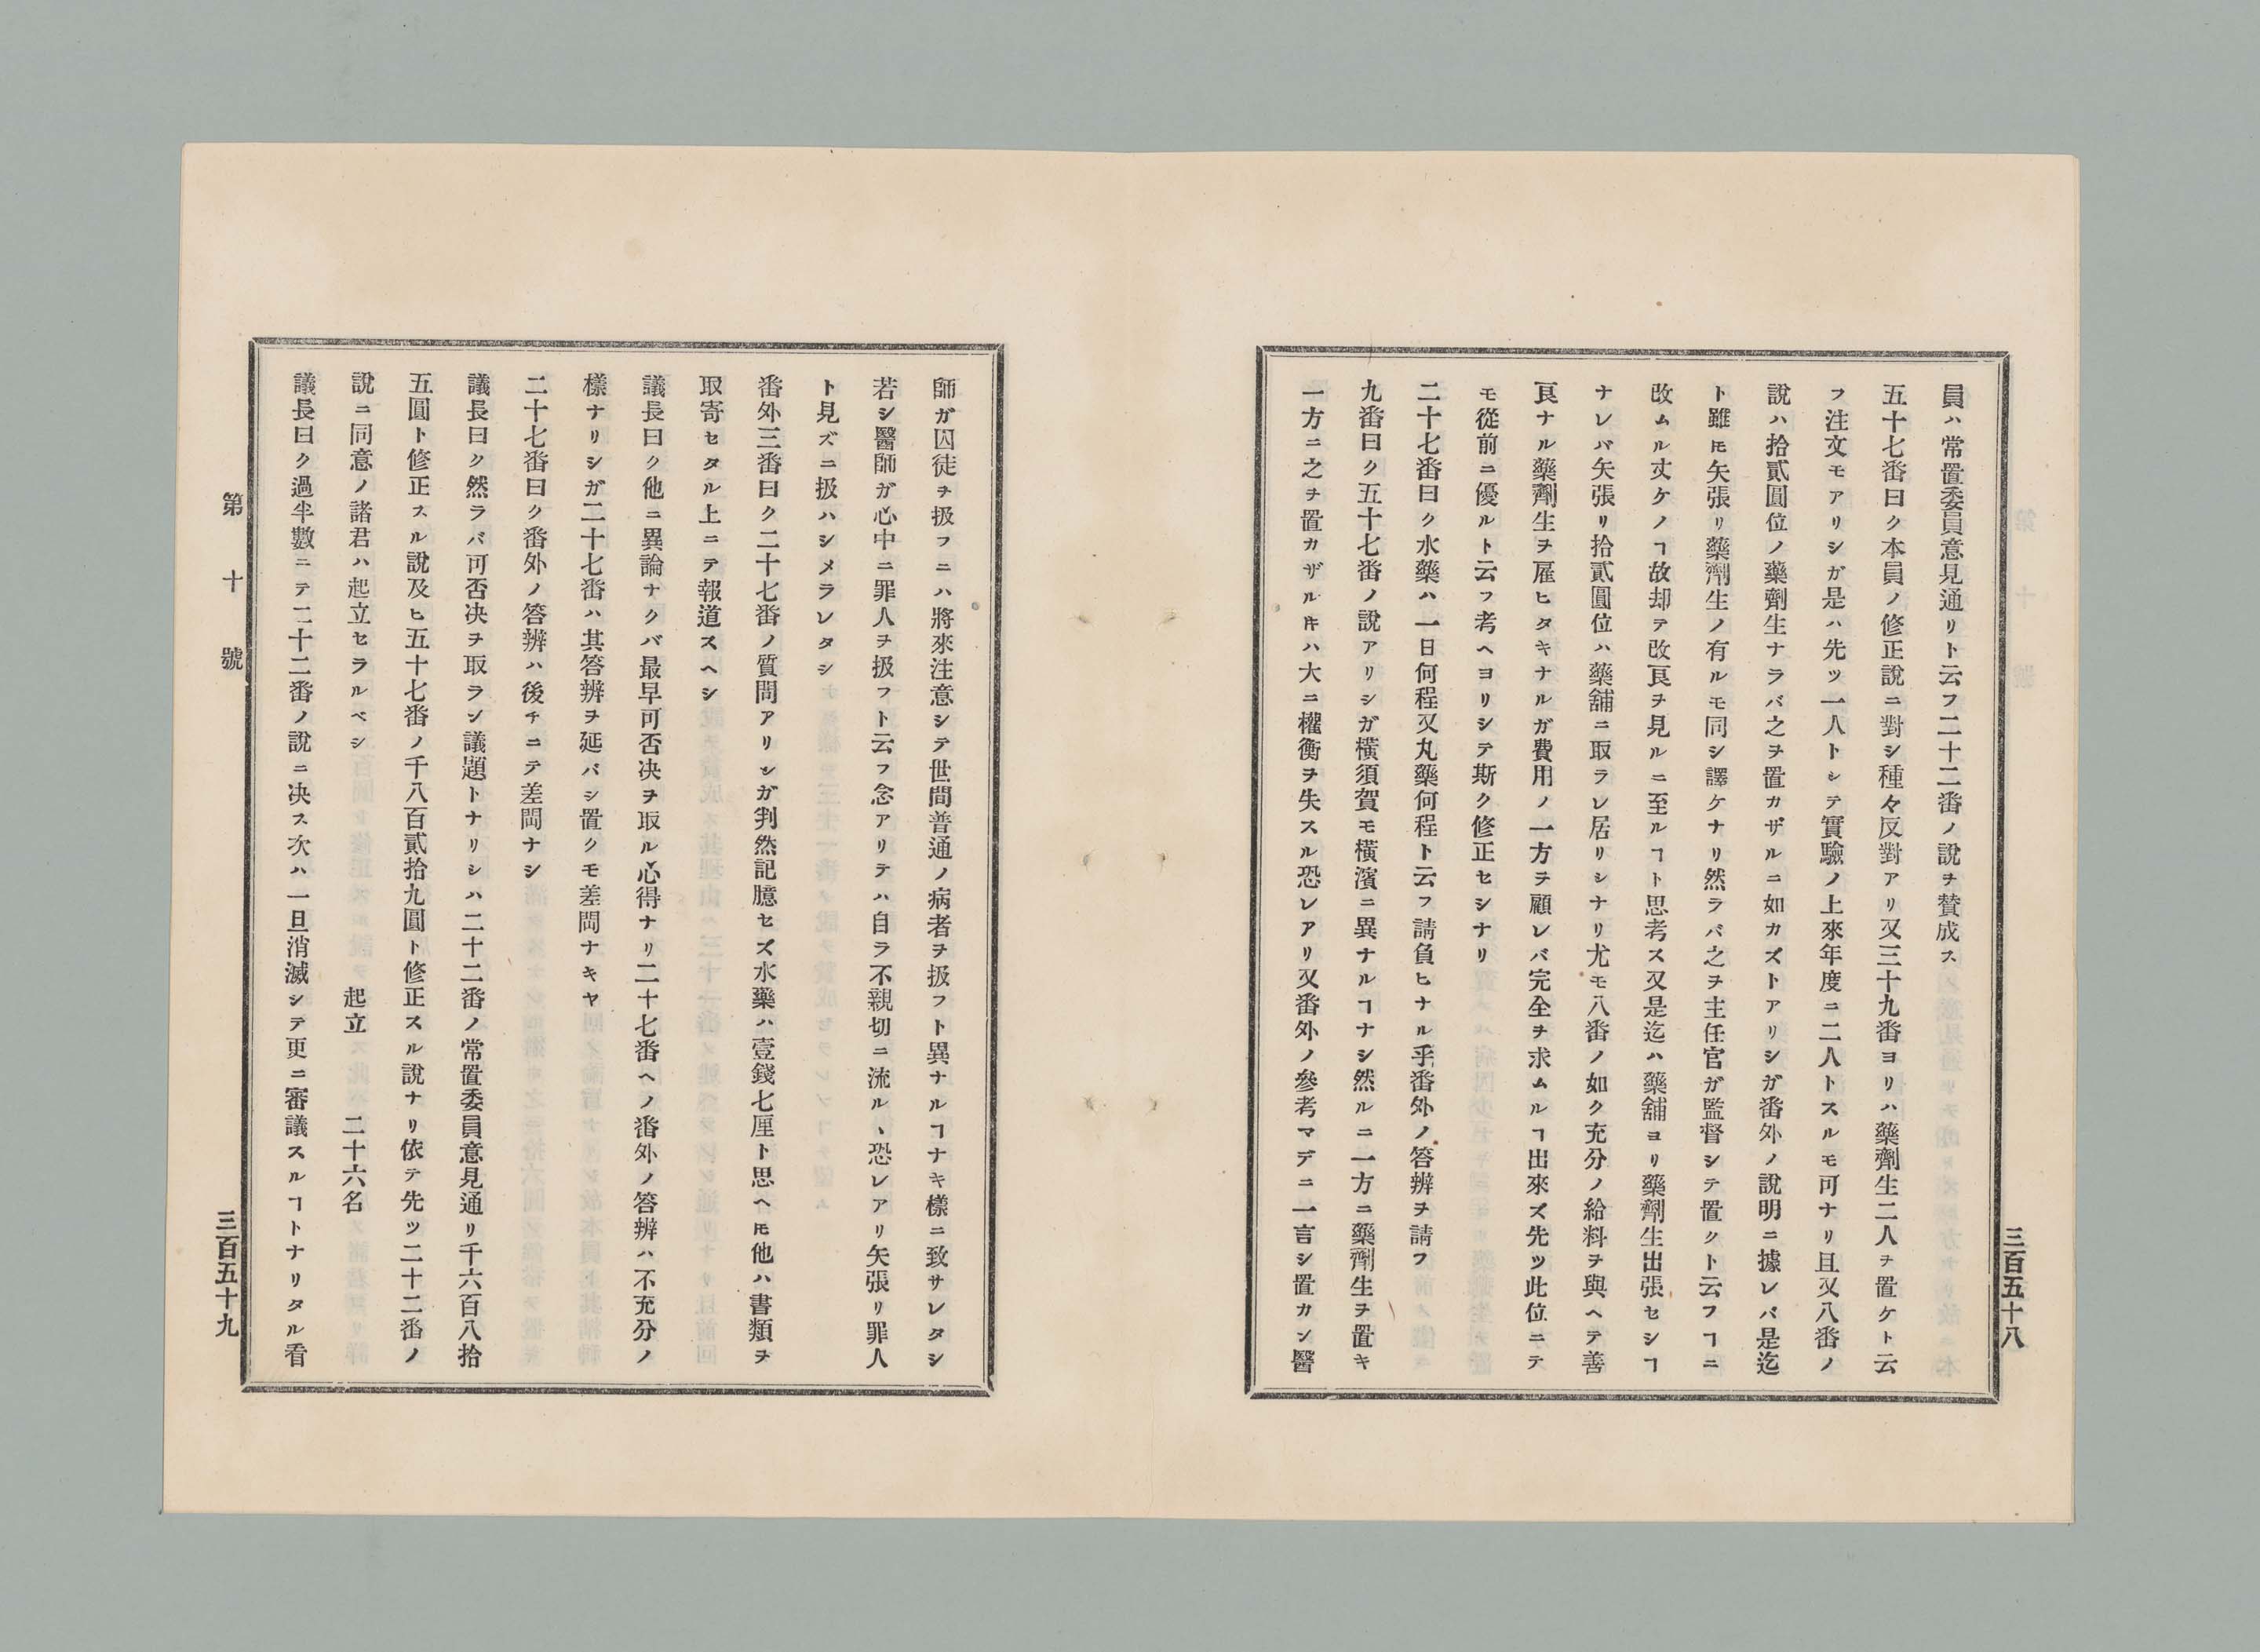 員ハ常置委員意見通リト云フ二十二番ノ說ヲ賛成ス
五十七番曰ク本員ノ修正說ニ對シ種々反對アリ又三十九番ヨリハ藥劑生二人ヲ置ケト云
フ注文モアリシガ是ハ先ツ一人トシテ實驗ノ上來年度ニ二人トスルモ可ナリ且又八番ノ
說ハ拾貳圓位ノ藥劑生ナラバ之ヲ置カザルニ如カズトアリシガ番外ノ說明ニ據レバ是迄
ト雖モ矢張リ藥劑生ノ有ルモ同シ譯ケナリ然ラバ之ヲ主任官ガ監督シテ置クト云フヿニ
改ムル丈ケノヿ故却テ改良ヲ見ルニ至ルヿト思考ス又是迄ハ藥舖ヨリ藥劑生出張セシヿ
ナレバ矢張リ拾貳圓位ハ藥舖ニ取ラレ居リシナリ尤モ八番ノ如ク充分ノ給料ヲ與ヘテ善
良ナル藥劑生ヲ雇ヒタキナルガ費用ノ一方ヲ顧レバ完全ヲ求ムルヿ出來ズ先ツ此位ニテ
モ從前ニ優ルト云フ考ヘヨリシテ斯ク修正セシナリ
二十七番曰ク水藥ハ一日何程又丸藥何程ト云フ請負ヒナル乎番外ノ答辨ヲ請フ
九番曰ク五十七番ノ說アリシガ橫須賀モ橫濱ニ異ナルヿナシ然ルニ一方ニ藥劑生ヲ置キ
一方ニ之ヲ置カザルㇳキハ大ニ權衡ヲ失スル恐レアリ又番外ノ參考マデニ一言シ置カン醫
三百五十八
師ガ囚徒ヲ扱フニハ將來注意シテ世間普通ノ病者ヲ扱フト異ナルヿナキ樣ニ致サレタシ
若シ醫師ガ心中ニ罪人ヲ扱フト云フ念アリテハ自ラ不親切ニ流ルヽ恐レアリ矢張リ罪人
ト見ズニ扱ハシメラレタシ
番外三番曰ク二十七番ノ質問アリシガ判然記臆セズ水藥ハ壹錢七厘ト思ヘㇳモ他ハ書類ヲ
取寄セタル上ニテ報道スヘシ
議長曰ク他ニ異論ナクバ最早可否決ヲ取ル心得ナリ二十七番ヘノ番外ノ答辨ハ不充分ノ
樣ナリシガ二十七番ハ其答辨ヲ延バシ置クモ差閊ナキヤ
二十七番曰ク番外ノ答辨ハ後チニテ差閊ナシ
議長曰ク然ラバ可否決ヲ取ラン議題トナリシハ二十二番ノ常置委員意見通リ千六百八拾
五圓ト修正スル說及ヒ五十七番ノ千八百貳拾九圓ト修正スル說ナリ依テ先ツ二十二番ノ
說ニ同意ノ諸君ハ起立セラルベシ　起立　二十六名
議長曰ク過半數ニテ二十二番ノ說ニ决ス次ハ一旦消滅シテ更ニ審議スルヿトナリタル看
第十號
三百五十九